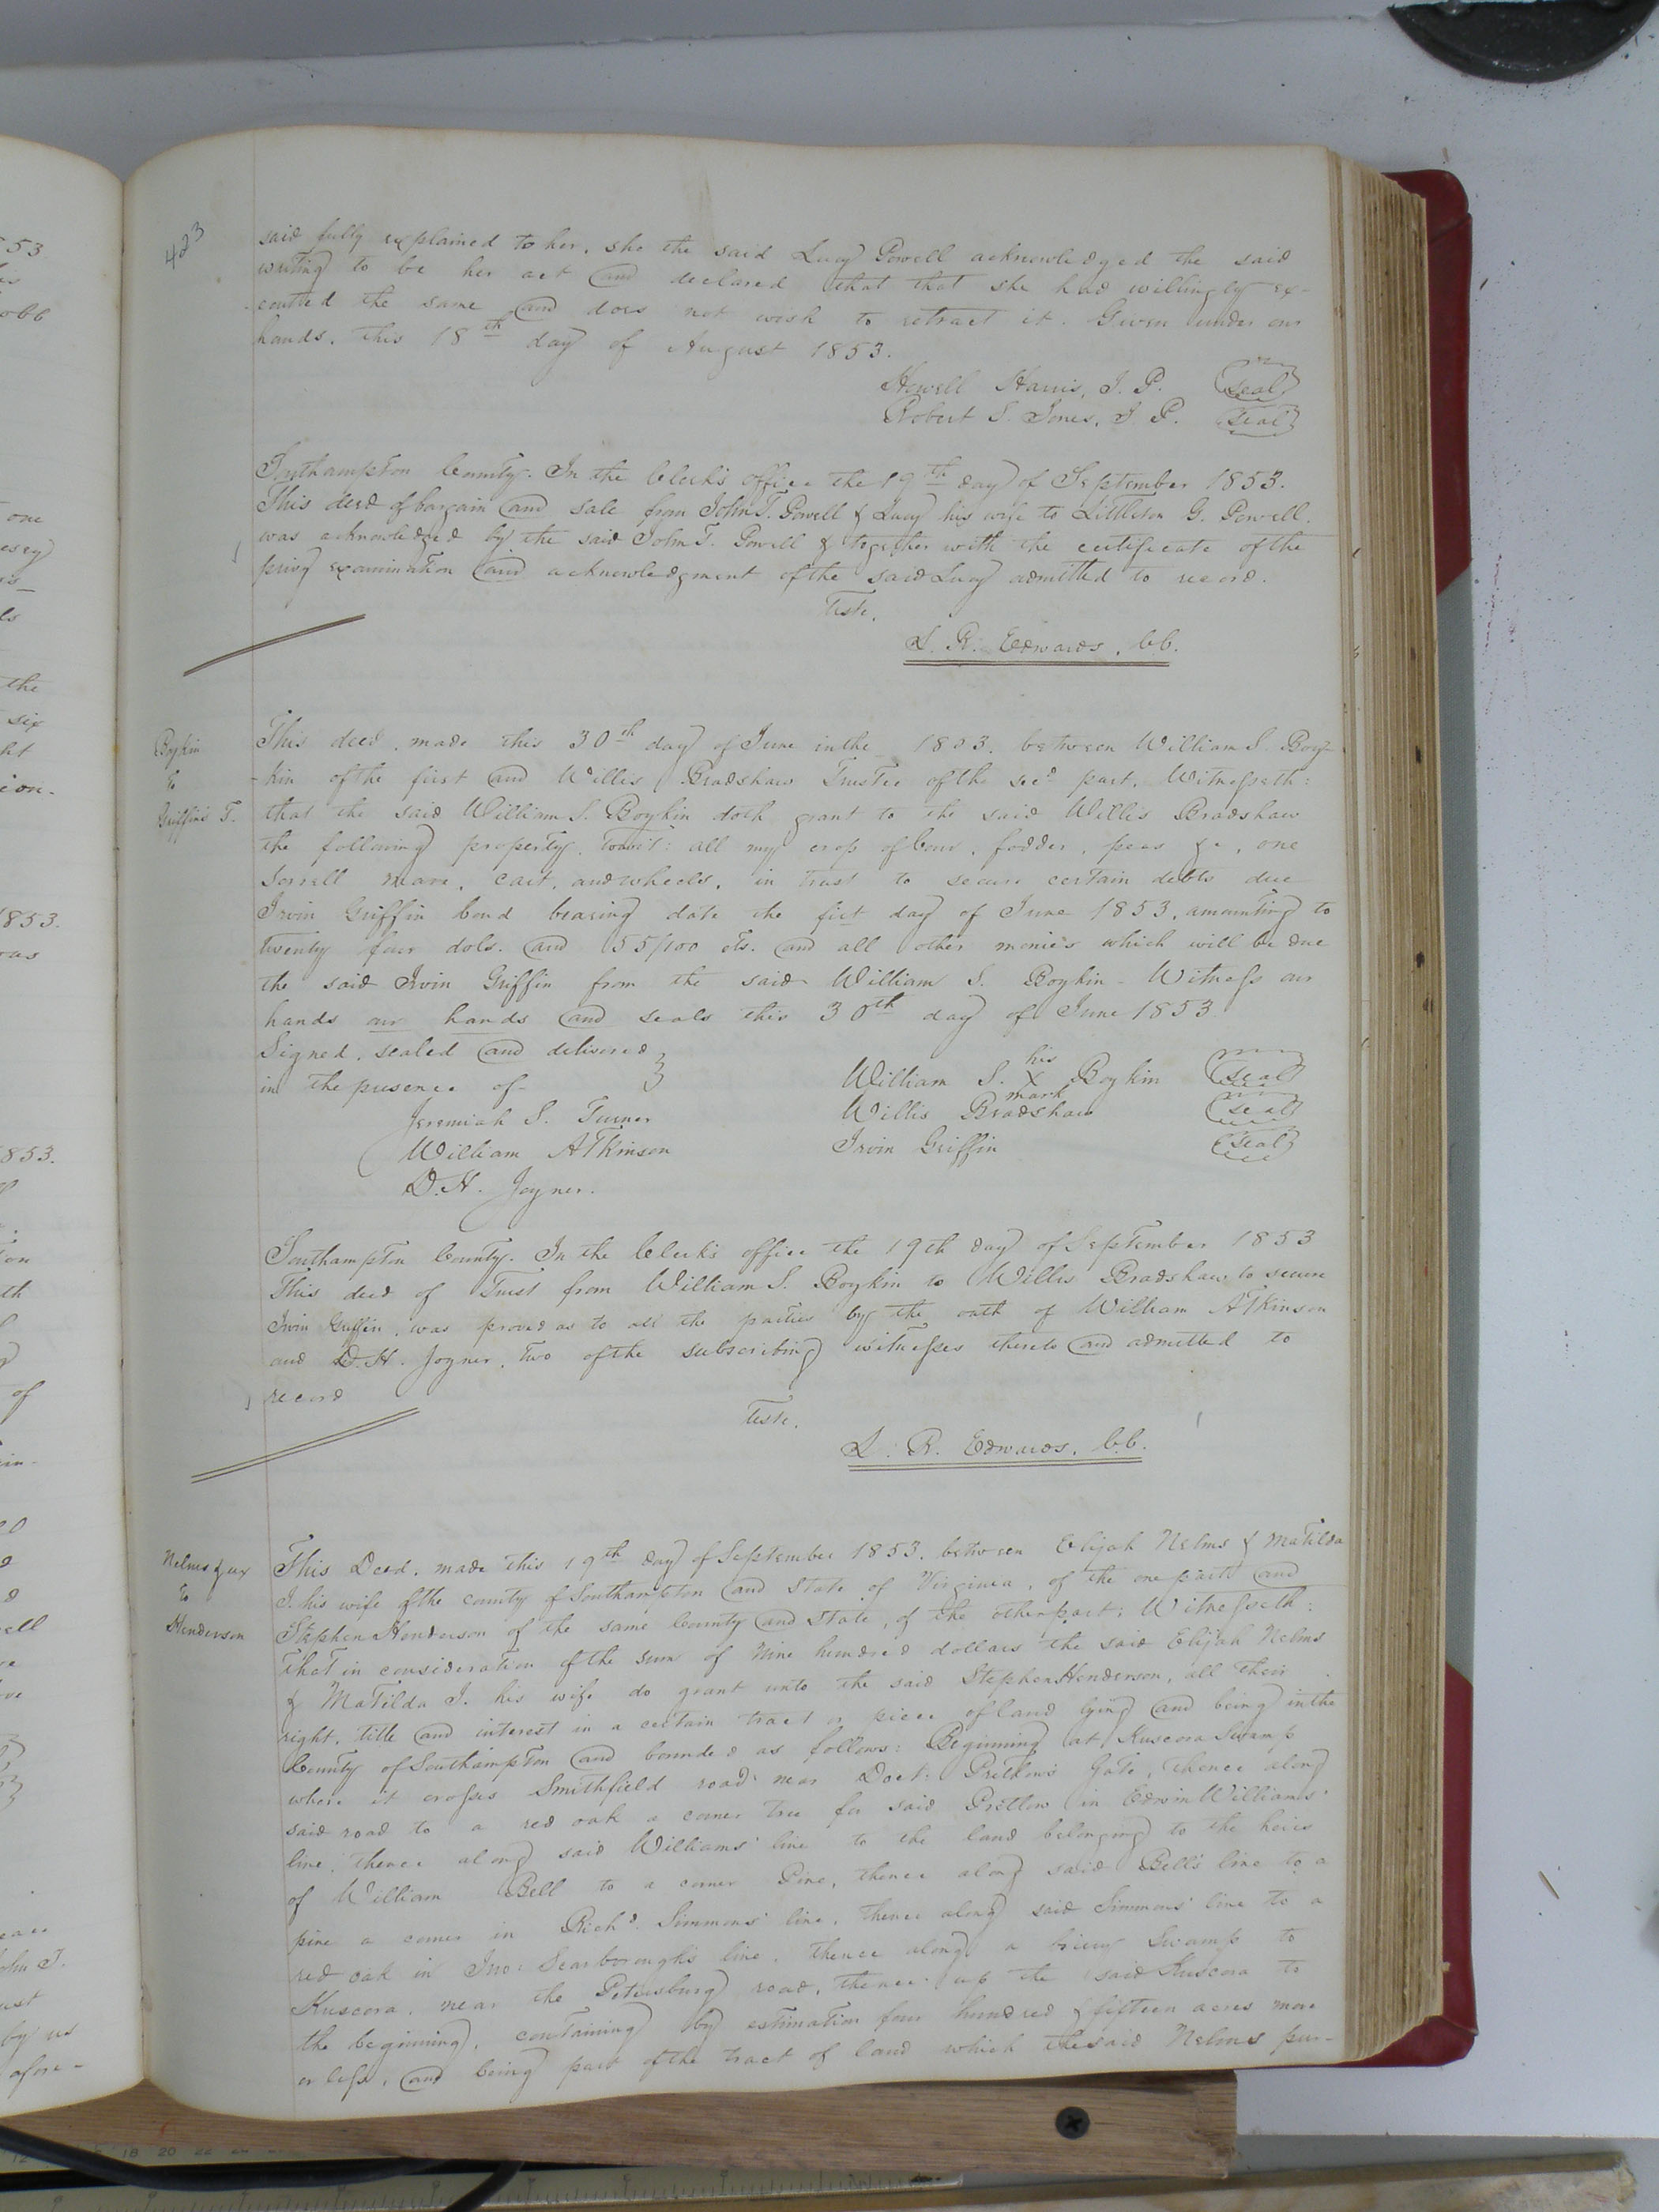 423
said fully explained to her, she the said Lucy Powell acknowledged the said
writing to be her act and declared that that she had willingly ex-
-ecuted the same and does not wish to retract it. Given under our
hands, this 18th day of August 1853.
Howell Harris, J. P. (seal)
Robert S. Jones, J. P. (seal)
Southampton County. In the Clerk's office the 19th day of September 1853.
This deed of bargain and sale from John T. Powell & Lucy his wife to Littleton G. Powell,
was acknowledged by the said John T. Powell & together with the certificate of the
privy examination and acknowledgment of the said Lucy admitted to record.
Teste,
L. R. Edwards, C.C.
Boykin
to
Griffin's T.
This deed, made this 30th day of June in the 1853, between William S. Boy-
-kin of the first and Willis Bradshaw Trustee of the secd part, Witnesseth:
that the said William S. Boykin doth grant to the said Willis Bradshaw
the following property, towit: all my crop of Corn, fodder, peas &c, one
Sorrell mare, cart, and wheels, in trust to secure certain debts due
Irvin Griffin bond bearing date the first day of June 1853, amounting to
twenty four dols. and 55/100 cts. and all other monies which will be due
the said Irvin Griffin from the said William S. Boykin - Witness our
hands our hands and seals this 30th day of June 1853
Signed, sealed and delivered }
in the presence of - }
William S. his X mark Boykin (seal)
Jeremiah S. Turner
Willis Bradshaw (seal)
William Atkinson
Irvin Griffin (seal)
D. H. Joyner.
Southampton County. In the Clerk's office the 19th day of September 1853
This deed of Trust from William S. Boykin to Willis Bradshaw, to secure
Irvin Griffin, was proved as to all the parties by the oath of William Atkinson
and D. H. Joyner, two of the subscribing witnesses thereto and admitted to
record
Teste,
L. R. Edwards, C.C.
Nelms & ux
to
Henderson
This Deed, made this 19th day of September 1853, between Elijah Nelms & Matilda
J. his wife of the county of Southampton and State of Virginia, of the one part and
Stephen Henderson of the same County and State, of the other part; Witnesseth:
that in consideration of the sum of nine hundred dollars the said Elijah Nelms
& Matilda J. his wife do grant unto the said Stephen Henderson, all their
right, title and interest in a certain tract or piece of land lying and being in the
County of Southampton and bounded as follows: Beginning at Kuscora Swamp
where it crosses Smithfield road near Doct: Pretlow's Gate, thence along
said road to a red oak a corner tree for said Pretlow in Edwin Williams'
line, thence along said Williams' line to the land belonging to the heirs
of William Bell to a corner Pine, thence along said Bell's line to a
pine a corner in Richd. Simmons' line, thence along said Simmons' line to a
red oak in Jno: Scarborough's line, thence along a briery Swamp to
Kuscora, near the Petersburg road, thence up the said Kuscora to
the beginning, containing by estimation four hundred & fifteen acres more
or less, and being part of the tract of land which the said Nelms pur-